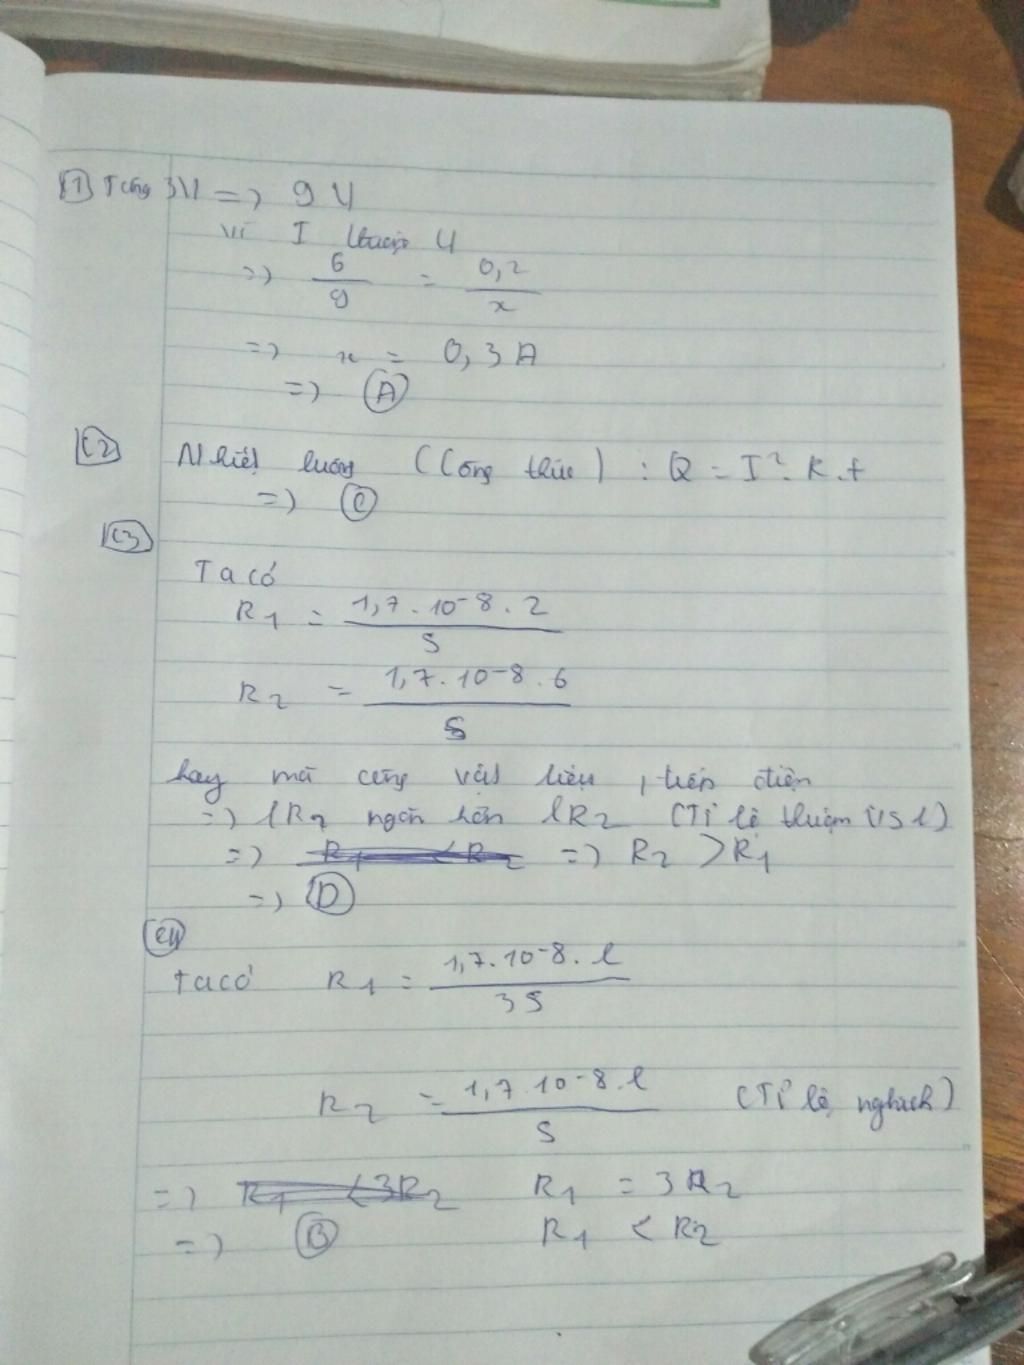 C1 Tăng 3V => 9 V
Vì I thuận U
=> 6/9 = 0,2/x
=> x = 0,3 A
=> A
C2 Nhiệt lượng (Công thức) : Q = I². R.t
=> C
C3
Ta có
R1 = 1,7.10-8.2/S
R2 = 1,7.10-8.6/S
hay mà cùng vật liệu, tiết điện
=> lR2 ngắn hơn lR2 (Tỉ lệ thuận l)
=> R1 < R2 => R2 > R1
=> D
C4
Ta có R1 = 1,7.10-8.l/3S
R2 = 1,7.10-8.l/S (Tỉ lệ nghịch)
=> R1 < 3R2 R1 = 3R2
=> B R1 < R2